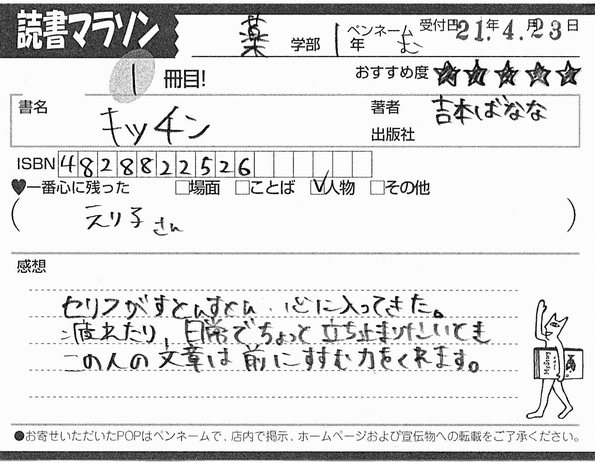 読書マラソン
薬 学部 1年 ペンネーム む 受付日 21.4.23日
1 冊目! おすすめ度 ★★★★★
書名 キッチン
著者 吉本ばなな
出版社
ISBN 4828822526
♥一番心に残った □場面 □ことば ☑人物 □その他
( えり子さん )
感想
セリフがすとんすとん、心に入ってきた。
疲れたり、日常でちょっと立ち止まりたいとき
この人の文章は前にすすむ力をくれます。
●お寄せいただいたPOPはペンネームで、店内で掲示、ホームページおよび宣伝物への転載をご了承ください。